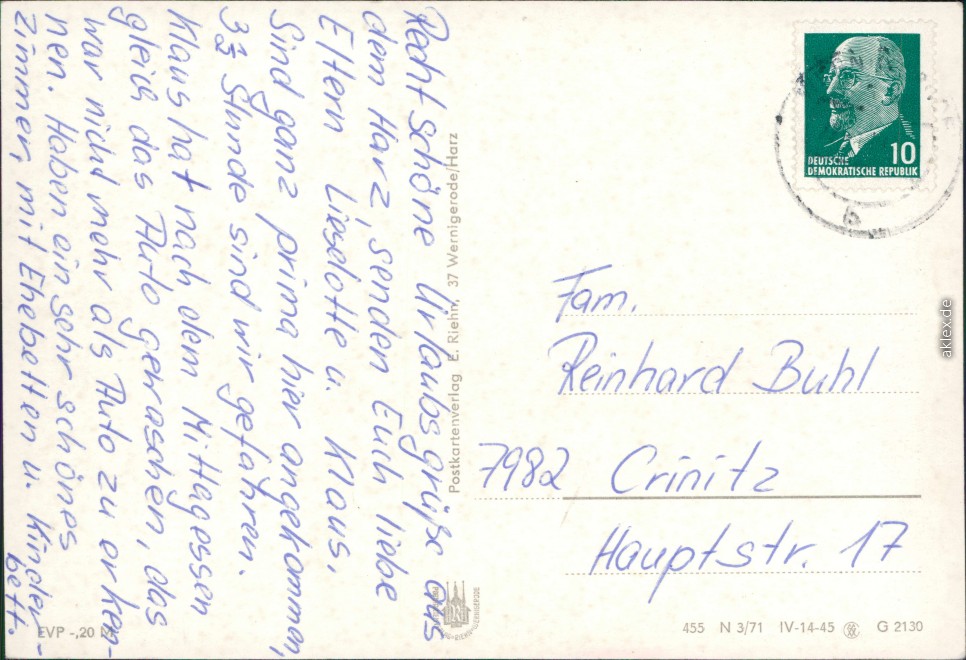 Recht schöne Urlaubsgrüße aus
dem Harz, senden Euch liebe
Eltern Liselotte u. Klaus,
Sind ganz prima hier angekommen,
3½ Stunde sind wir gefahren.
Klaus hat nach dem Mittagessen
gleich das Auto gewaschen, das
war nicht mehr als Auto zu erken-
nen. Haben ein sehr schönes
Zimmer, mit Ehebetten u. Kinder-
bett.
Postkartenverlag E. Riehn, 37 Wernigerode/Harz
DEUTSCHE
DEMOKRATISCHE REPUBLIK
10
b
Fam.
Reinhard Buhl
7982 Crinitz
Hauptstr. 17
EVP -,20 M
455 N 3/71 IV-14-45 G 2130
aklex.de